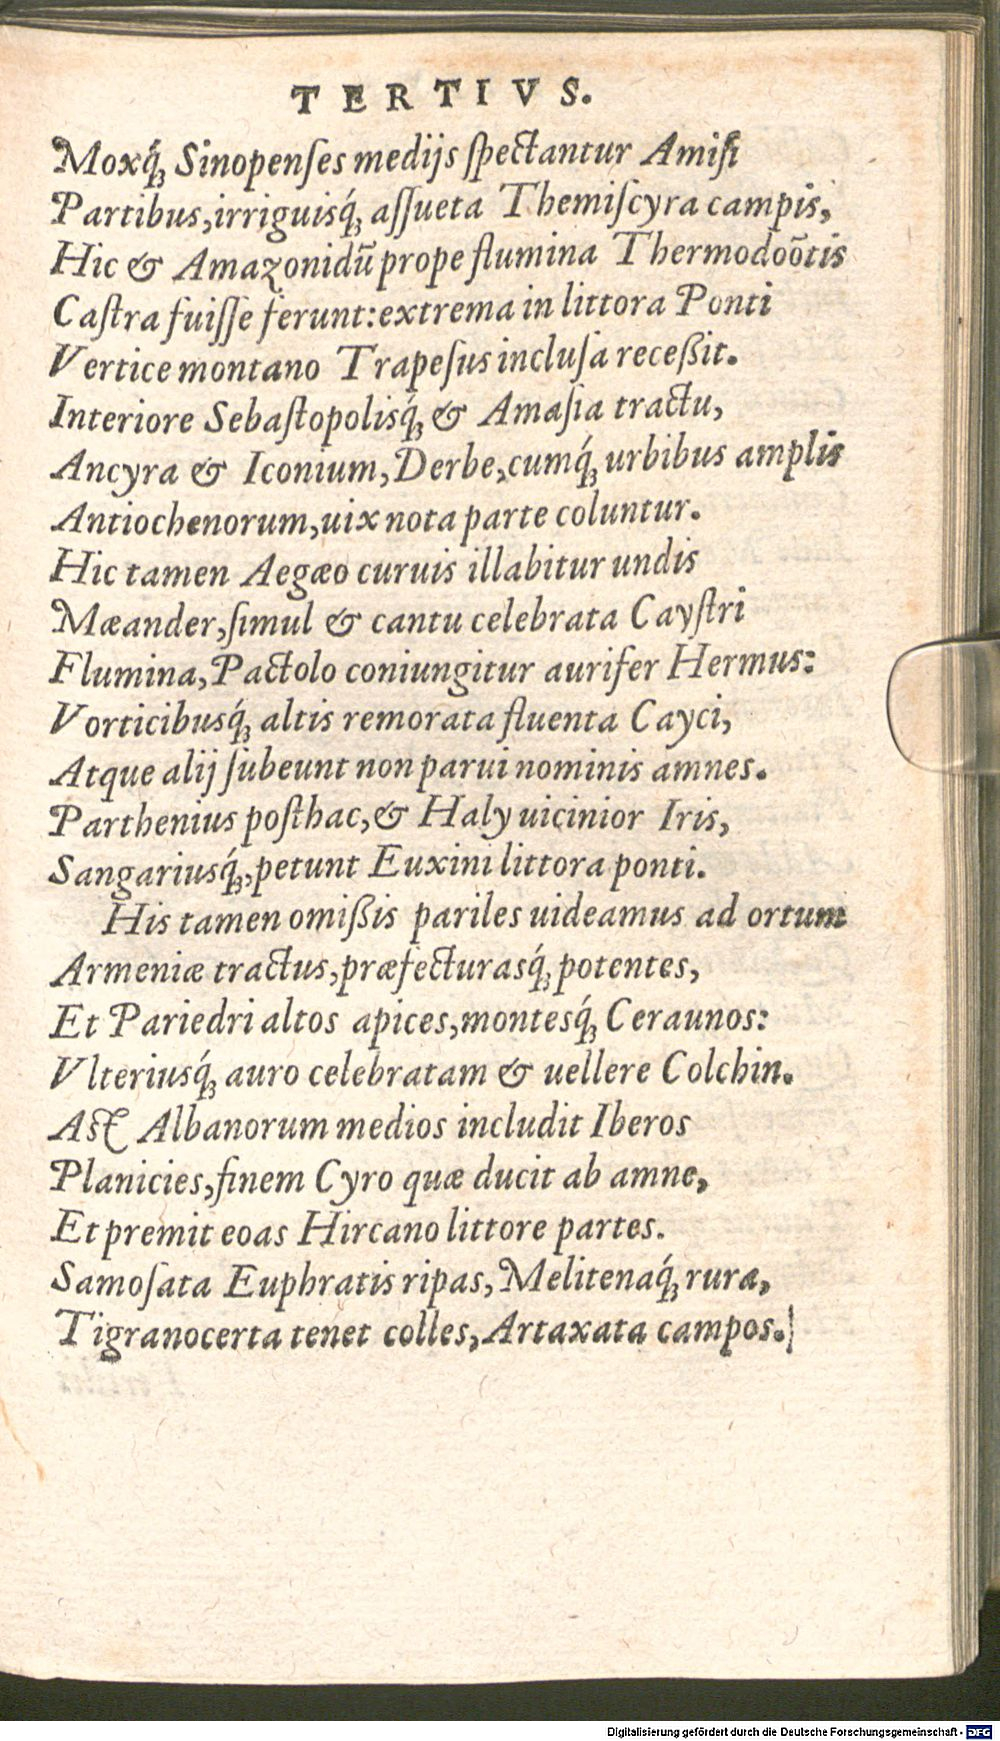 TERTIVS.
Moxq́₃ Sinopenſes medijs ſpectantur Amiſi
Partibus, irriguisq́₃ aſſueta Themiſcyra campis,
Hic & Amazonidũ prope flumina Thermodoõtis
Caſtra fuiſſe ferunt: extrema in littora Ponti
Vertice montano Trapeſus incluſa receßit.
Interiore Sebaſtopolisq́₃ & Amaſia tractu,
Ancyra & Iconium, Derbe, cumq́₃ urbibus amplis
Antiochenorum, uix nota parte coluntur.
Hic tamen Aegæo curuis illabitur undis
Mæander, ſimul & cantu celebrata Cayſtri
Flumina, Pactolo coniungitur aurifer Hermus:
Vorticibusq́₃ altis remorata fluenta Cayci,
Atque alij ſubeunt non parui nominis amnes.
Parthenius poſthac, & Haly uicinior Iris,
Sangariusq́₃, petunt Euxini littora ponti.
His tamen omißis pariles uideamus ad ortum
Armeniæ tractus, præfecturasq́₃ potentes,
Et Pariedri altos apices, montesq́₃ Ceraunos:
Vlteriusq́₃ auro celebratam & uellere Colchin.
Aſt Albanorum medios includit Iberos
Planicies, finem Cyro quæ ducit ab amne,
Et premit eoas Hircano littore partes.
Samoſata Euphratis ripas, Melitenaq́₃ rura,
Tigranocerta tenet colles, Artaxata campos.
Digitalisierung gefördert durch die Deutsche Forschungsgemeinschaft - DFG